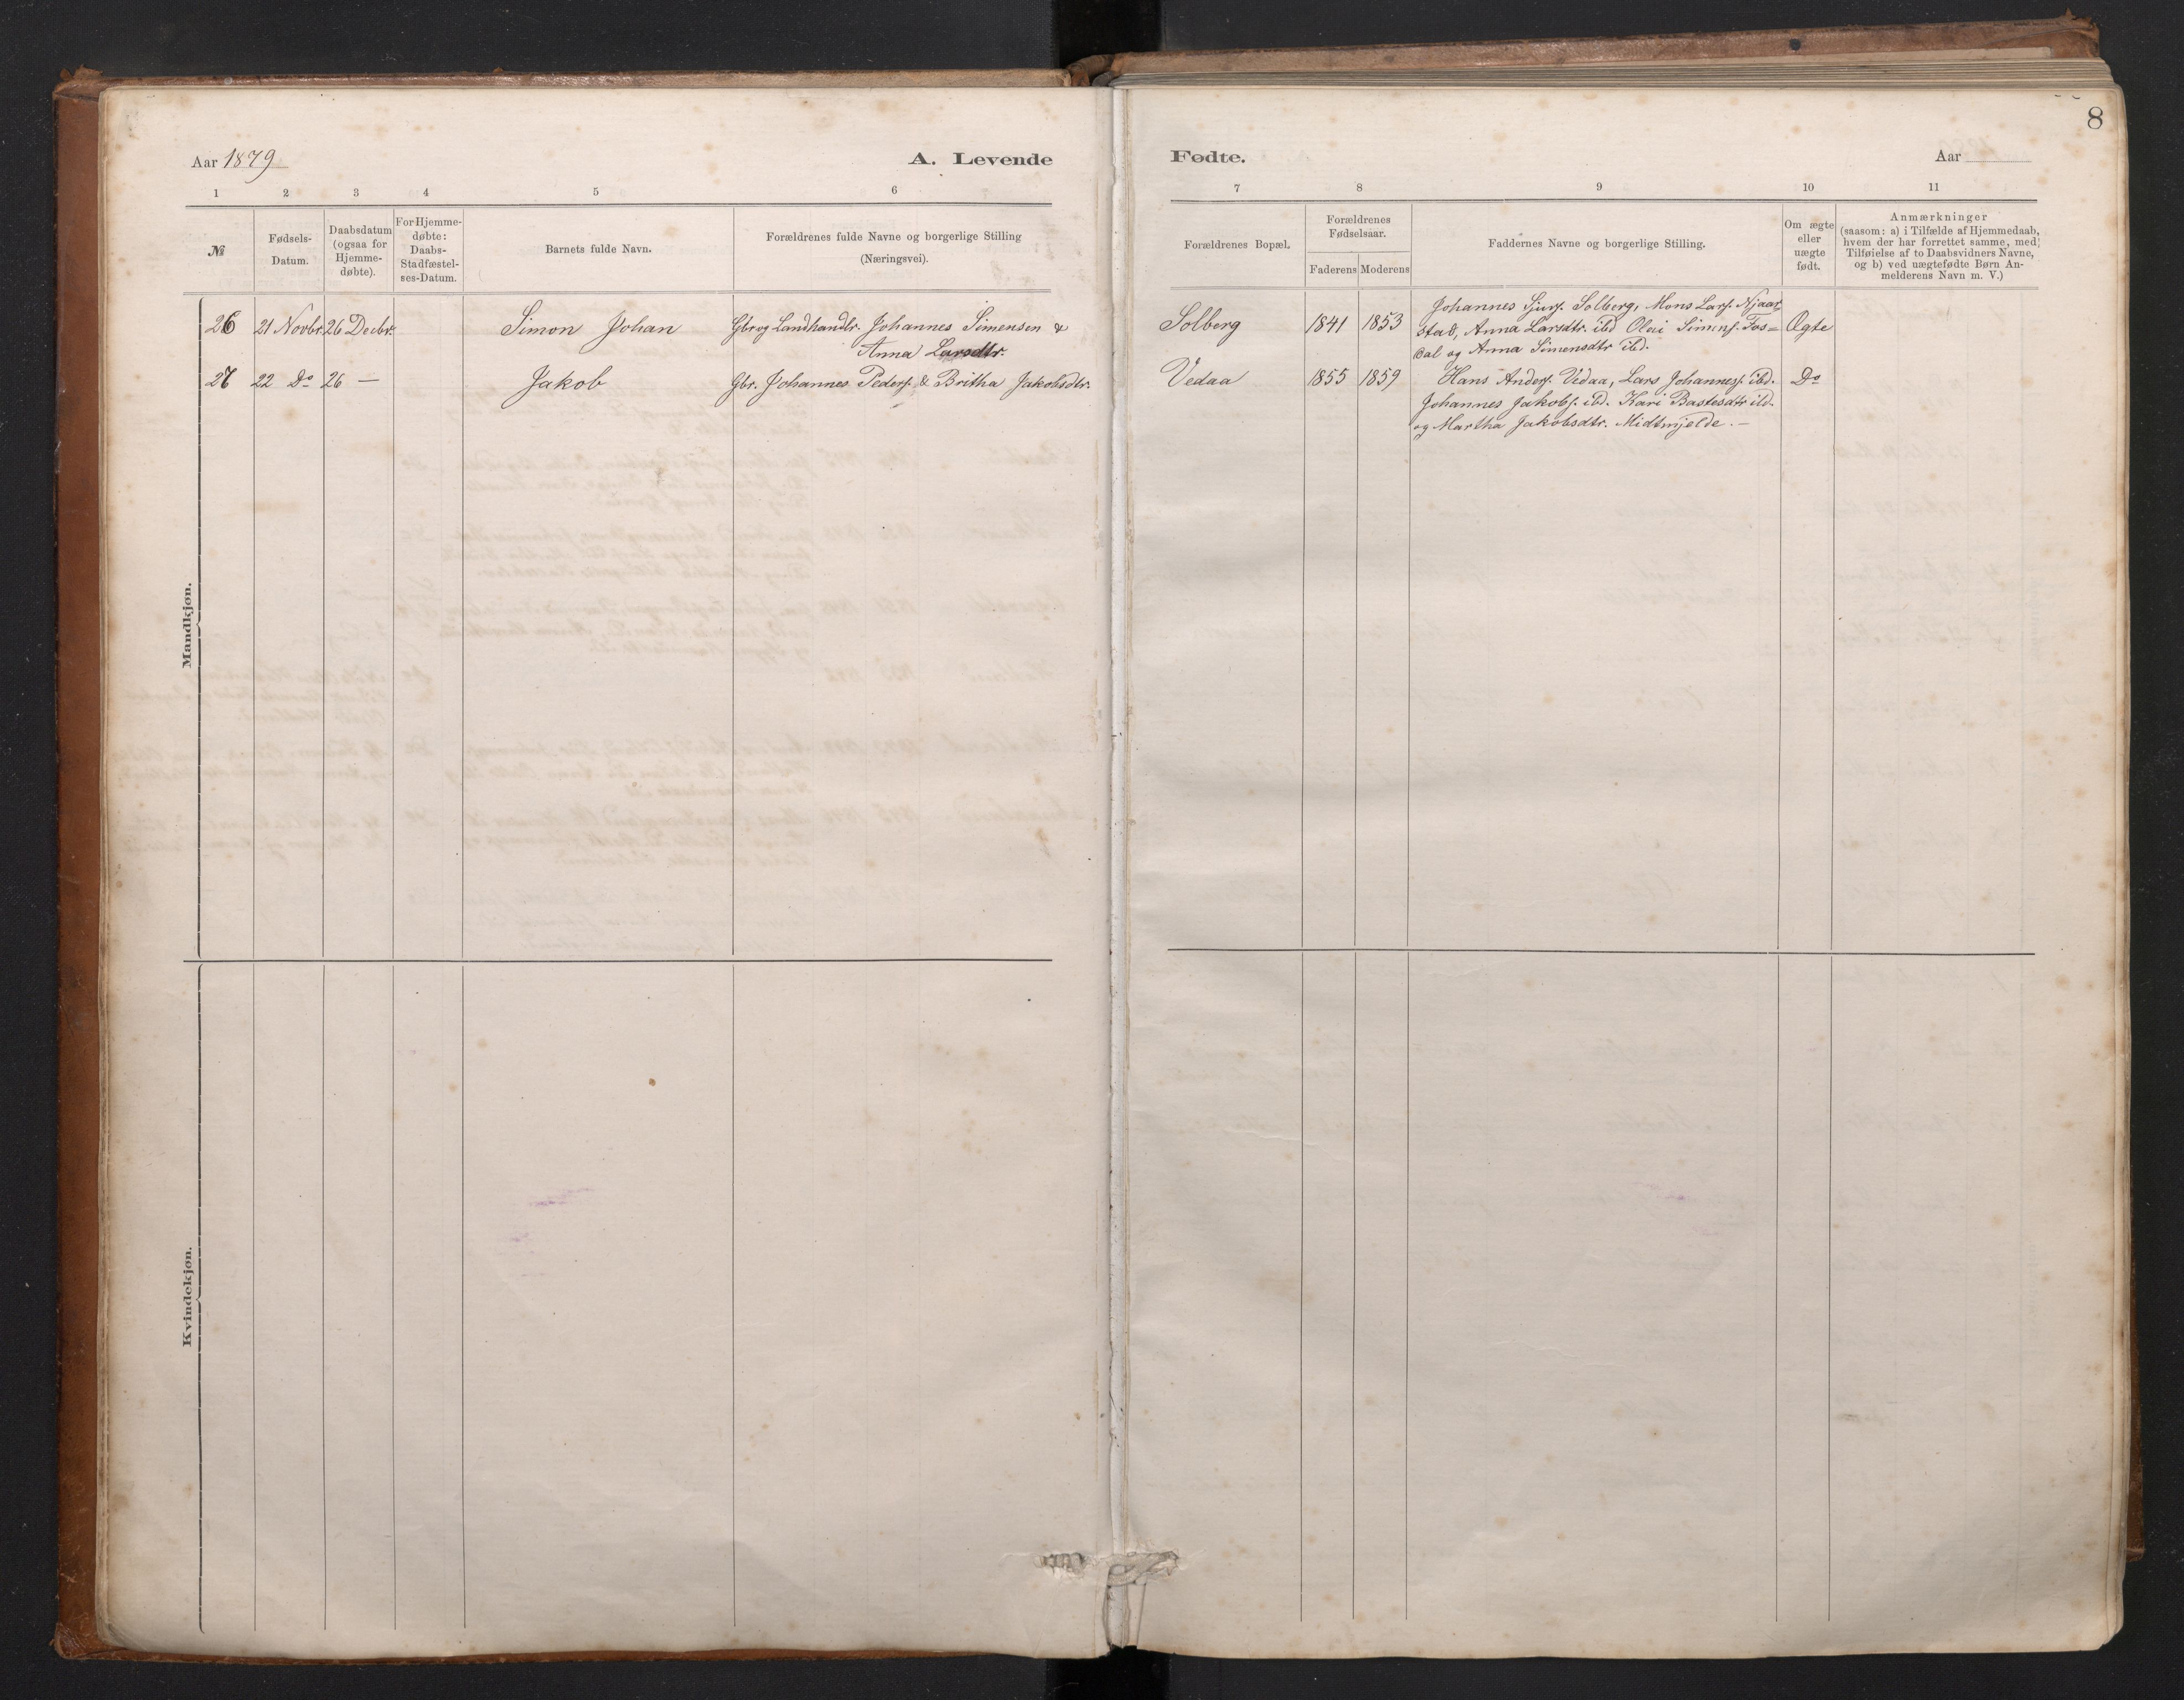 8
Aar 1879 A. Levende
Fødte. Aar
1 2 3 4 5 6
7 8 9 10 11
№
Fødsels-
Datum.
Daabsdatum
(ogsaa for
Hjemme-
døbte).
For Hjemme-
døbte:
Daabs-
Stadfæstel-
ses-Datum.
Barnets fulde Navn.
Forældrenes fulde Navne og borgerlige Stilling
(Næringsvei).
Forældrenes Bopæl.
Forældrenes
Fødselsaar.
Faderens Moderens
Faddernes Navne og borgerlige Stilling.
Om ægte
eller
uægte
født.
Anmærkninger
(saasom: a) i Tilfælde af Hjemmedaab,
hvem der har forrettet samme, med
Tilføielse af to Daabsvidners Navne,
og b) ved uægtefødte Børn An-
melderens Navn m. V.)
Mandkjøn.
26 21 Novbr. 26 Decbr. Simon Johan Gbr og Landhandlr. Johannes Simensen &
Anna Larsdtr.
Solberg 1841 1853 Johannes Sjurs. Solberg, Mons Lars. Njaar-
stad, Anna Larsdtr. ibd Olai Simens. Fos=
dal og Anna Simensdtr ibd.
Ægte
27 22 Do 26 — Jakob Gbr. Johannes Peders. & Britha Jakobsdtr.
Vedaa 1855 1859 Hans Anders. Vedaa, Lars Johanness. ibd.
Johannes Jakobs. ibd. Kari Bastesdtr ibd.
og Martha Jakobsdtr. Midtmjelde. —
Do
Kvindekjøn.